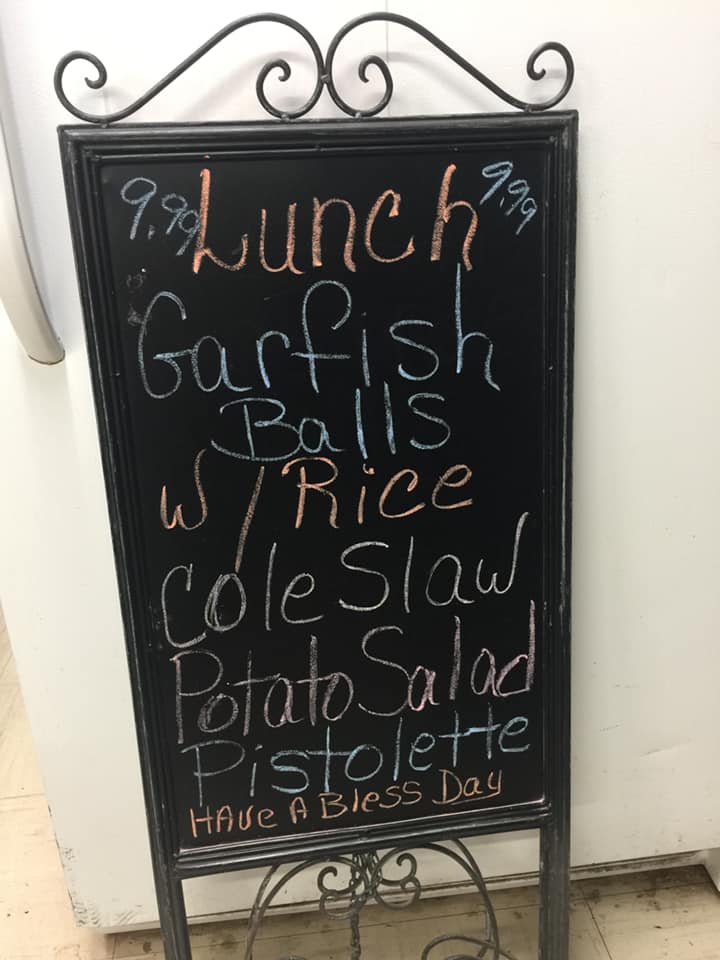 9.99 Lunch 9.99
Garfish
Balls
w/Rice
Cole Slaw
Potato Salad
Pistolette
HAve A Bless Day